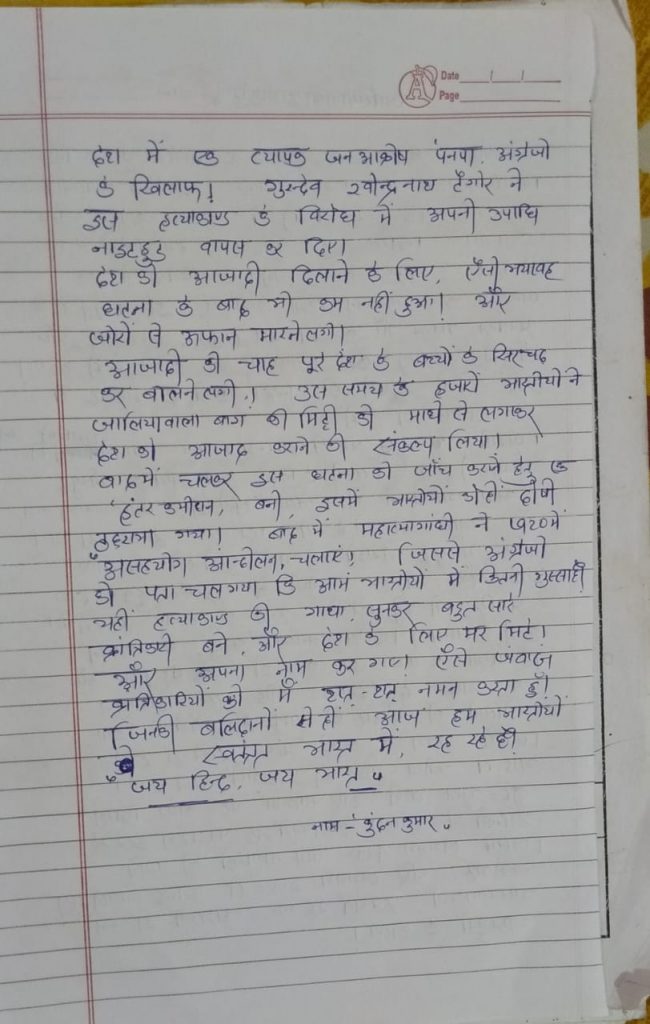 Date / /
Page
देश में एक व्यापक जन आक्रोष पनपा. अंग्रेजो
के खिलाफ! गुरुदेव रवीन्द्रनाथ टैगोर ने
इस हत्याकाण्ड के विरोध में अपनी उपाधि
नाइटहुड वापस कर दिए।
देश को आजादी दिलाने के लिए, ऐसी भयावह
घटना के बाद भी कम नहीं हुआ। और
जोरों से उफान मारने लगी।
आजादी की चाह पूरे देश के बच्चों के सिर चढ़
कर बोलने लगी.। उस समय के हजारों भारतीयों ने
जालियावाला बाग की मिट्टी को माथे से लगाकर
देश को आजाद कराने की संकल्प लिया।
बाद में चलकर इस घटना की जाँच करने हेतु एक
'हंटर कमीशन, बनी, इसमें भारतीयों को ही दोषी
ठहराया गया। बाद में महात्मा गांधी ने १९२० में
"असहयोग आन्दोलन, चलाएं! जिससे अंग्रेजो
को पता चल गया कि आम भारतीयों में कितनी गुस्सा है!
यहीं हत्याकाण्ड की गाथा, सुनकर बहुत सारे
क्रांतिकारी बने, और देश के लिए मर मिटे।
और अपना नाम कर गए। ऐसे जंबाज
क्रांतिकारियों को मैं शत्-शत् नमन करता हूँ।
जिनकी बलिदानों से ही आज हम भारतीयों
स्वतंत्र भारत में, रह रहे हैं!
"जय हिन्द, जय भारत"
नाम - कुंदन कुमार.